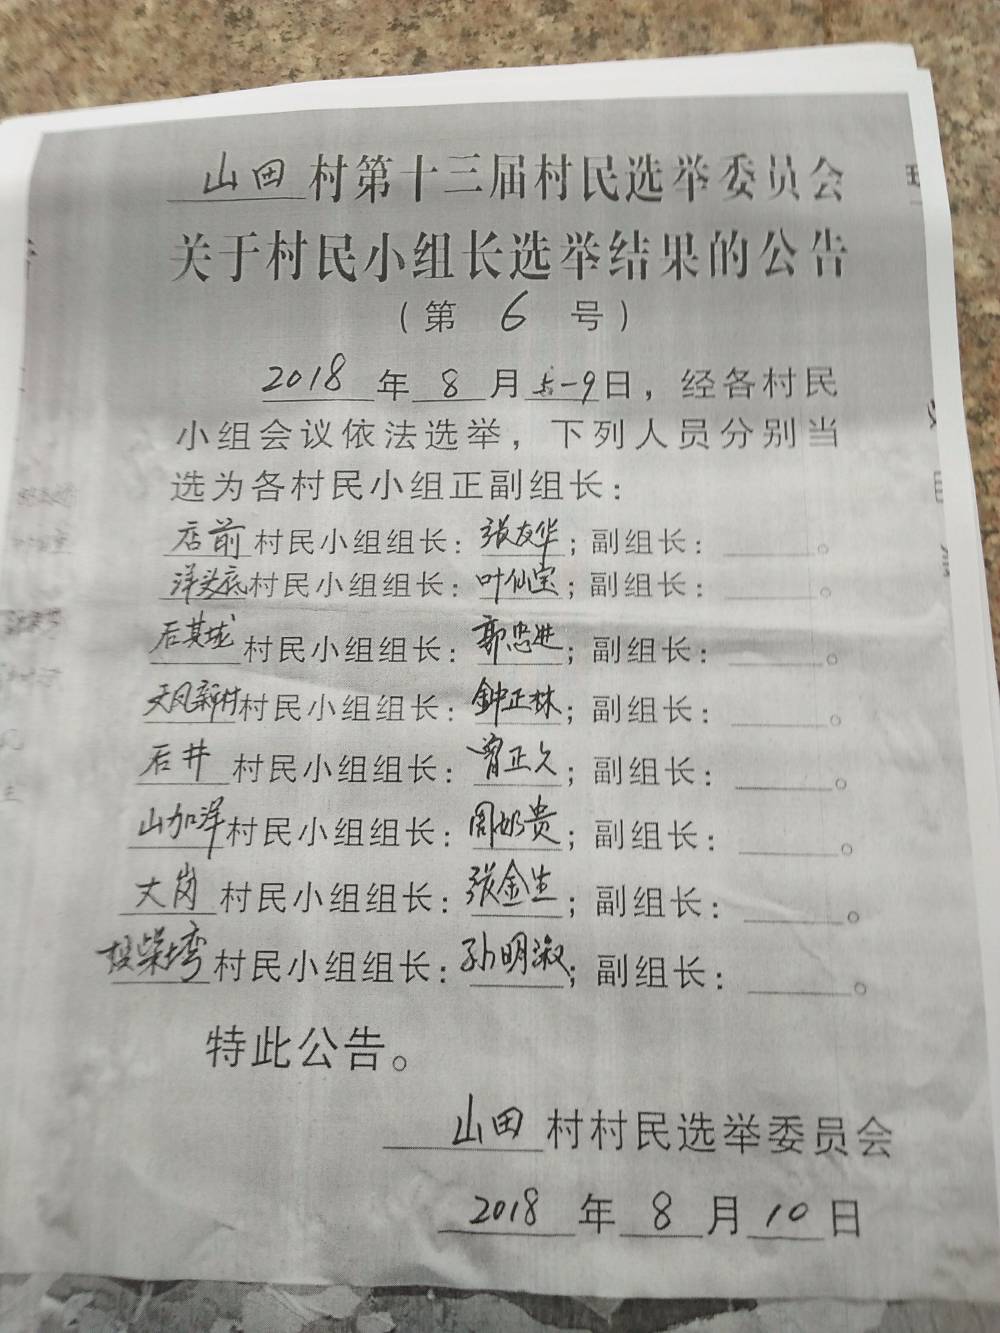 山田村第十三届村民选举委员会
关于村民小组长选举结果的公告
（第 6 号）
2018年8月5-9日，经各村民
小组会议依法选举，下列人员分别当
选为各村民小组正副组长：
店前村民小组组长：张友华；副组长：______。
洋头底村民小组组长：叶仙宝；副组长：______。
后其垅村民小组组长：郭忠进；副组长：______。
天凤新村村民小组组长：钟正林；副组长：______。
后井村民小组组长：曾正久；副组长：______。
山加洋村民小组组长：周奶贵；副组长：______。
大岗村民小组组长：张金生；副组长：______。
柴塆村民小组组长：孙明淑；副组长：______。
特此公告。
山田村村民选举委员会
2018年8月10日